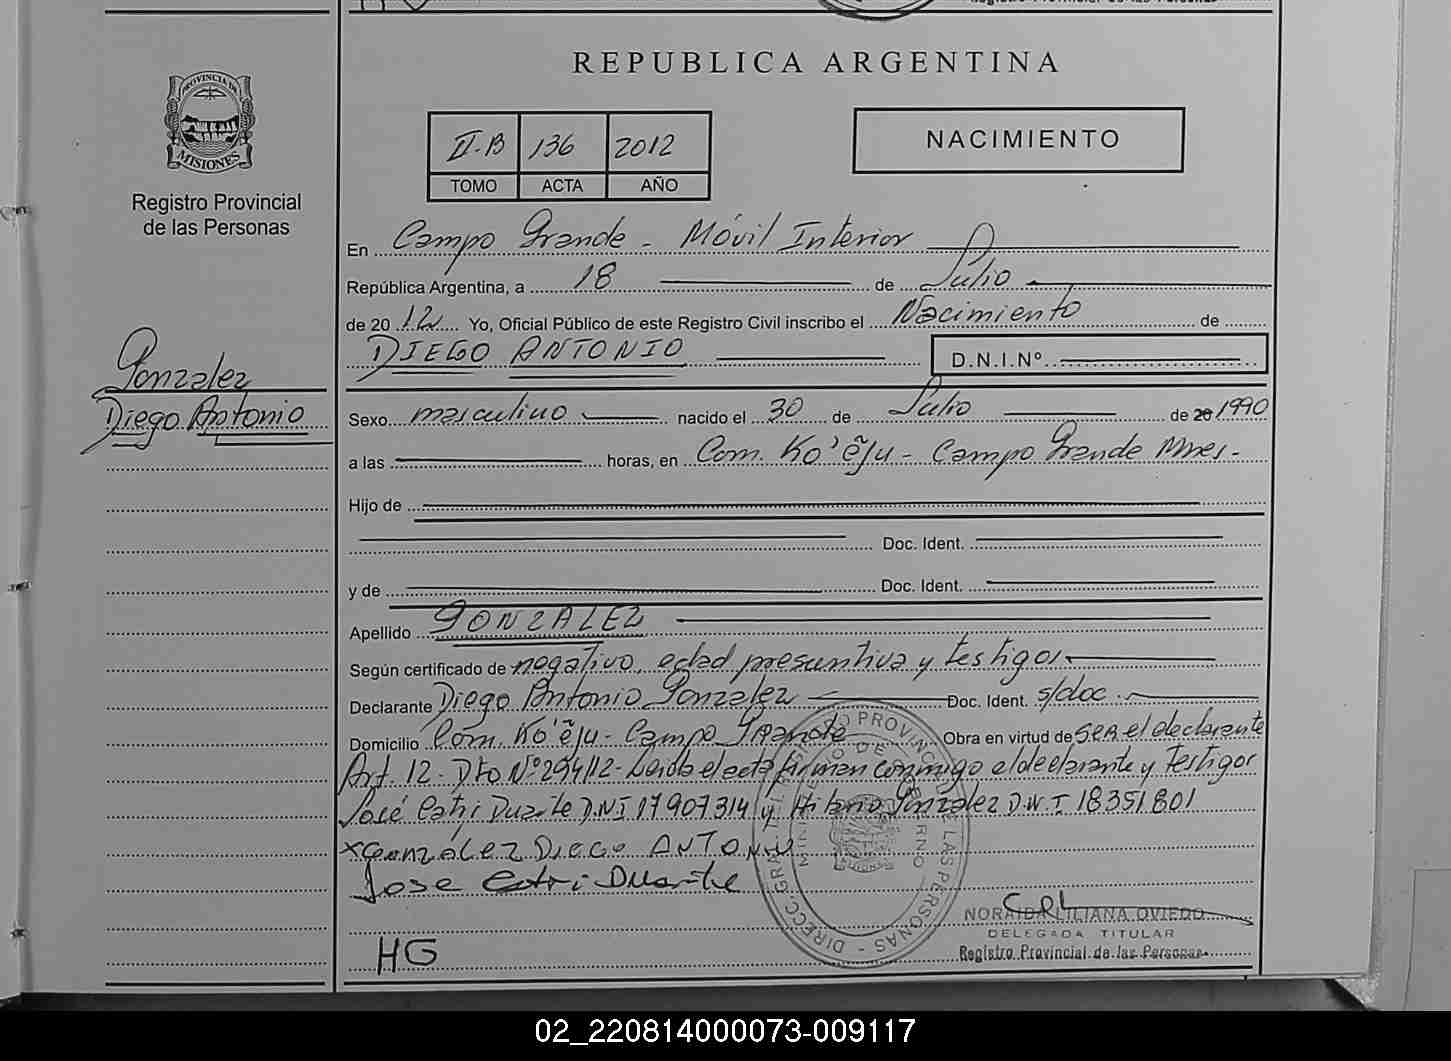 REPUBLICA ARGENTINA
PROVINCIA DE
MISIONES
Registro Provincial
de las Personas
II-B 136 2012
TOMO ACTA AÑO
NACIMIENTO
En Campo Grande - Móvil Interior
República Argentina, a 18 de Julio
de 2012 Yo, Oficial Público de este Registro Civil inscribo el Nacimiento de
DIEGO ANTONIO D.N.I.Nº
Gonzalez
Diego Antonio
Sexo masculino nacido el 30 de Julio de 20 1990
a las horas, en Com. Ko'ẽju - Campo Grande Mnes-
Hijo de
Doc. Ident.
y de Doc. Ident.
Apellido GONZALEZ
Según certificado de negativo, edad presuntiva y testigos
Declarante Diego Antonio Gonzalez Doc. Ident. s/doc.
Domicilio Com. Ko'ẽju - Campo Grande Obra en virtud de SER el declarante
Art. 12 - Dto Nº 294/12 - Leida el acta firman conmigo el declarante y testigos
José Catri Duarte D.N.I 17907314 y Hilario Gonzalez D.N.I 18351801
x Gonzalez Diego Antonio
Jose Catri Duarte
HG
NORAIDA LILIANA OVIEDO
DELEGADA TITULAR
Registro Provincial de las Personas
02_220814000073-009117